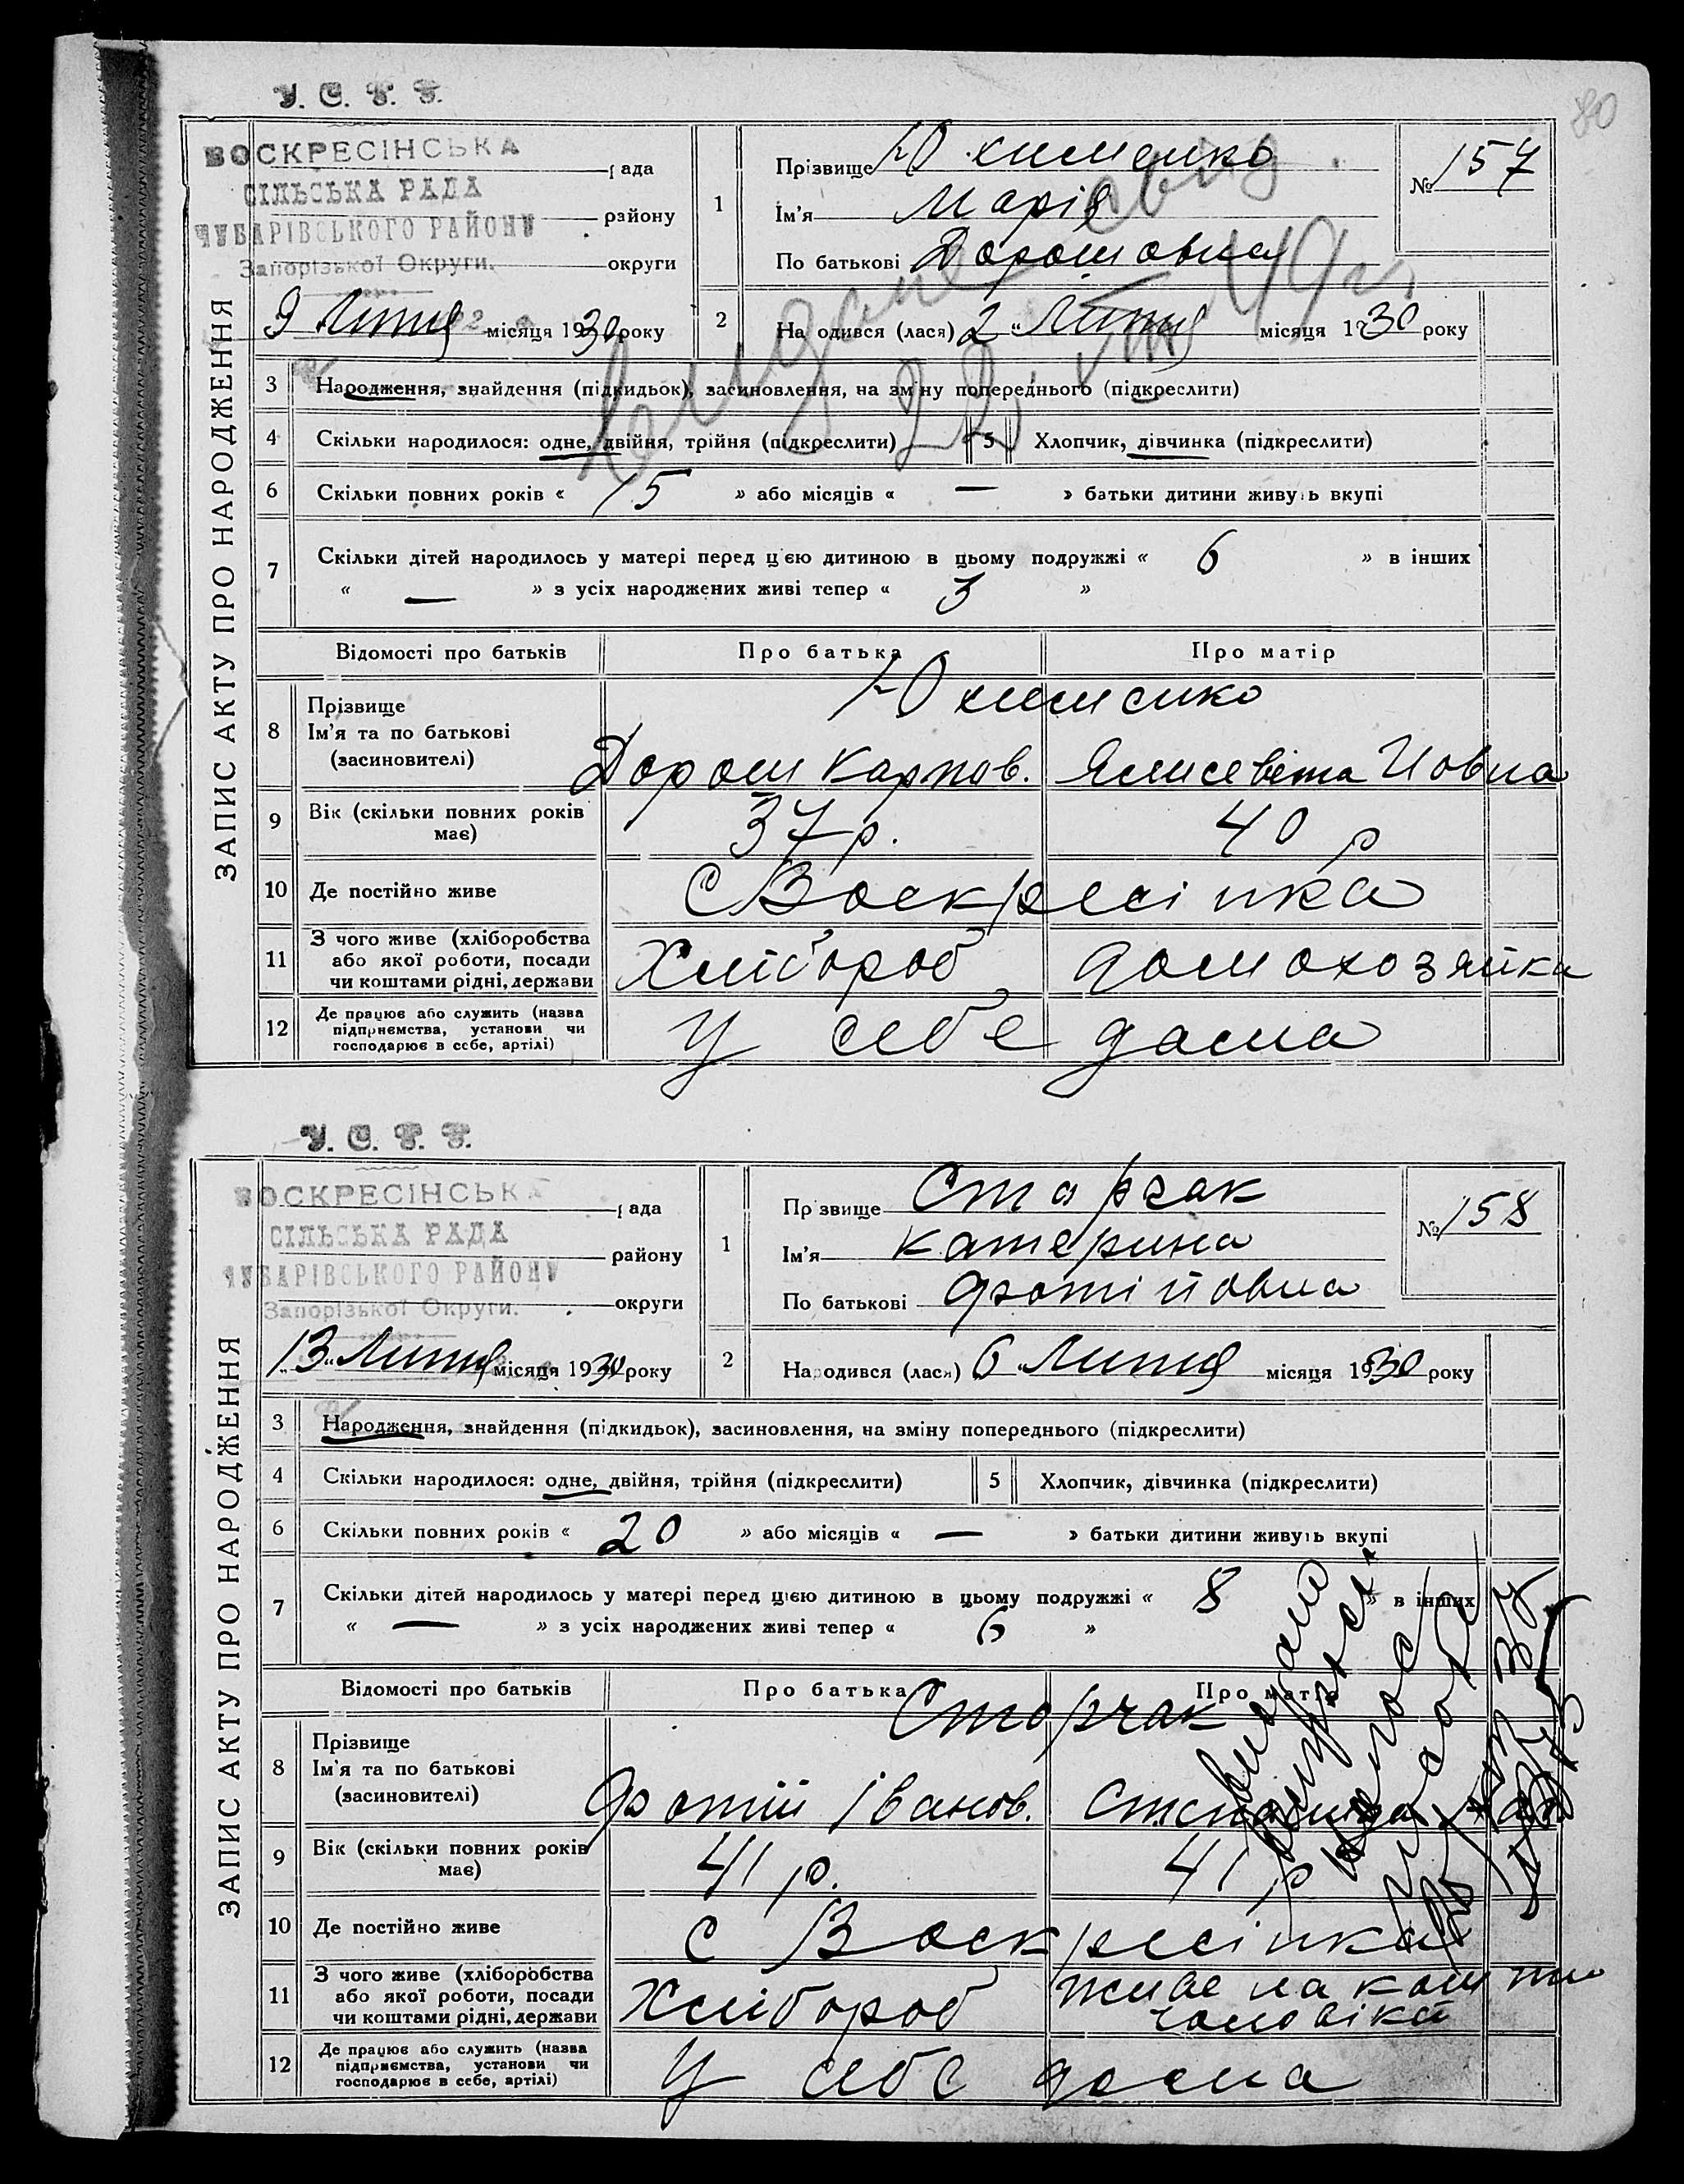 80
У. С. Р. Р.
ЗАПИС АКТУ ПРО НАРОДЖЕННЯ
ВОСКРЕСІНСЬКА рада
СІЛЬСЬКА РАДА району
ЧУБАРІВСЬКОГО РАЙОНУ
Запорізької Округи. округи
9 Липня місяця 1930 року
1 Прізвище Юхименко
Ім'я Марія
По батькові Дорошовна
№ 157
2 Народився (лася) 2 „ Липня місяця 1930 року
3 Народження, знайдення (підкидьок), засиновлення, на зміну попереднього (підкреслити)
4 Скільки народилося: одне, двійня, трійня (підкреслити) 5 Хлопчик, дівчинка (підкреслити)
6 Скільки повних років « 15 » або місяців « — » батьки дитини живуть вкупі
7 Скільки дітей народилось у матері перед цією дитиною в цьому подружжі « 6 » в інших
« — » з усіх народжених живі тепер « 3 »
Відомості про батьків Про батька Про матір
8 Прізвище
Ім'я та по батькові
(засиновителі)
Юхименко
Дорош Карпов. Ялисевета Йовна
9 Вік (скільки повних років має) 37 р. 40 р
10 Де постійно живе С Воскресінка
11 З чого живе (хліборобства
або якої роботи, посади
чи коштами рідні, держави
Хлібороб домохозяйка
12 Де працює або служить (назва
підприємства, установи чи
господарює в себе, артілі)
У себе дома
У. С. Р. Р.
ЗАПИС АКТУ ПРО НАРОДЖЕННЯ
ВОСКРЕСІНСЬКА рада
СІЛЬСЬКА РАДА району
ЧУБАРІВСЬКОГО РАЙОНУ
Запорізької Округи. округи
13 „ Липня місяця 1930 року
1 Прізвище Сторчак
Ім'я Катерина
По батькові Фотійовна
№ 158
2 Народився (лася) 6 Липня місяця 1930 року
3 Народження, знайдення (підкидьок), засиновлення, на зміну попереднього (підкреслити)
4 Скільки народилося: одне, двійня, трійня (підкреслити) 5 Хлопчик, дівчинка (підкреслити)
6 Скільки повних років « 20 » або місяців « — » батьки дитини живуть вкупі
7 Скільки дітей народилось у матері перед цією дитиною в цьому подружжі « 8 » в інших
« — » з усіх народжених живі тепер « 6 »
Відомості про батьків Про батька Про матір
8 Прізвище
Ім'я та по батькові
(засиновителі)
Сторчак
Фотій Іванов.
9 Вік (скільки повних років має) 41 р. 41 р
10 Де постійно живе с Воскресінка
11 З чого живе (хліборобства
або якої роботи, посади
чи коштами рідні, держави
Хлібороб живе на кошти
чоловіка
12 Де працює або служить (назва
підприємства, установи чи
господарює в себе, артілі)
У себе дома